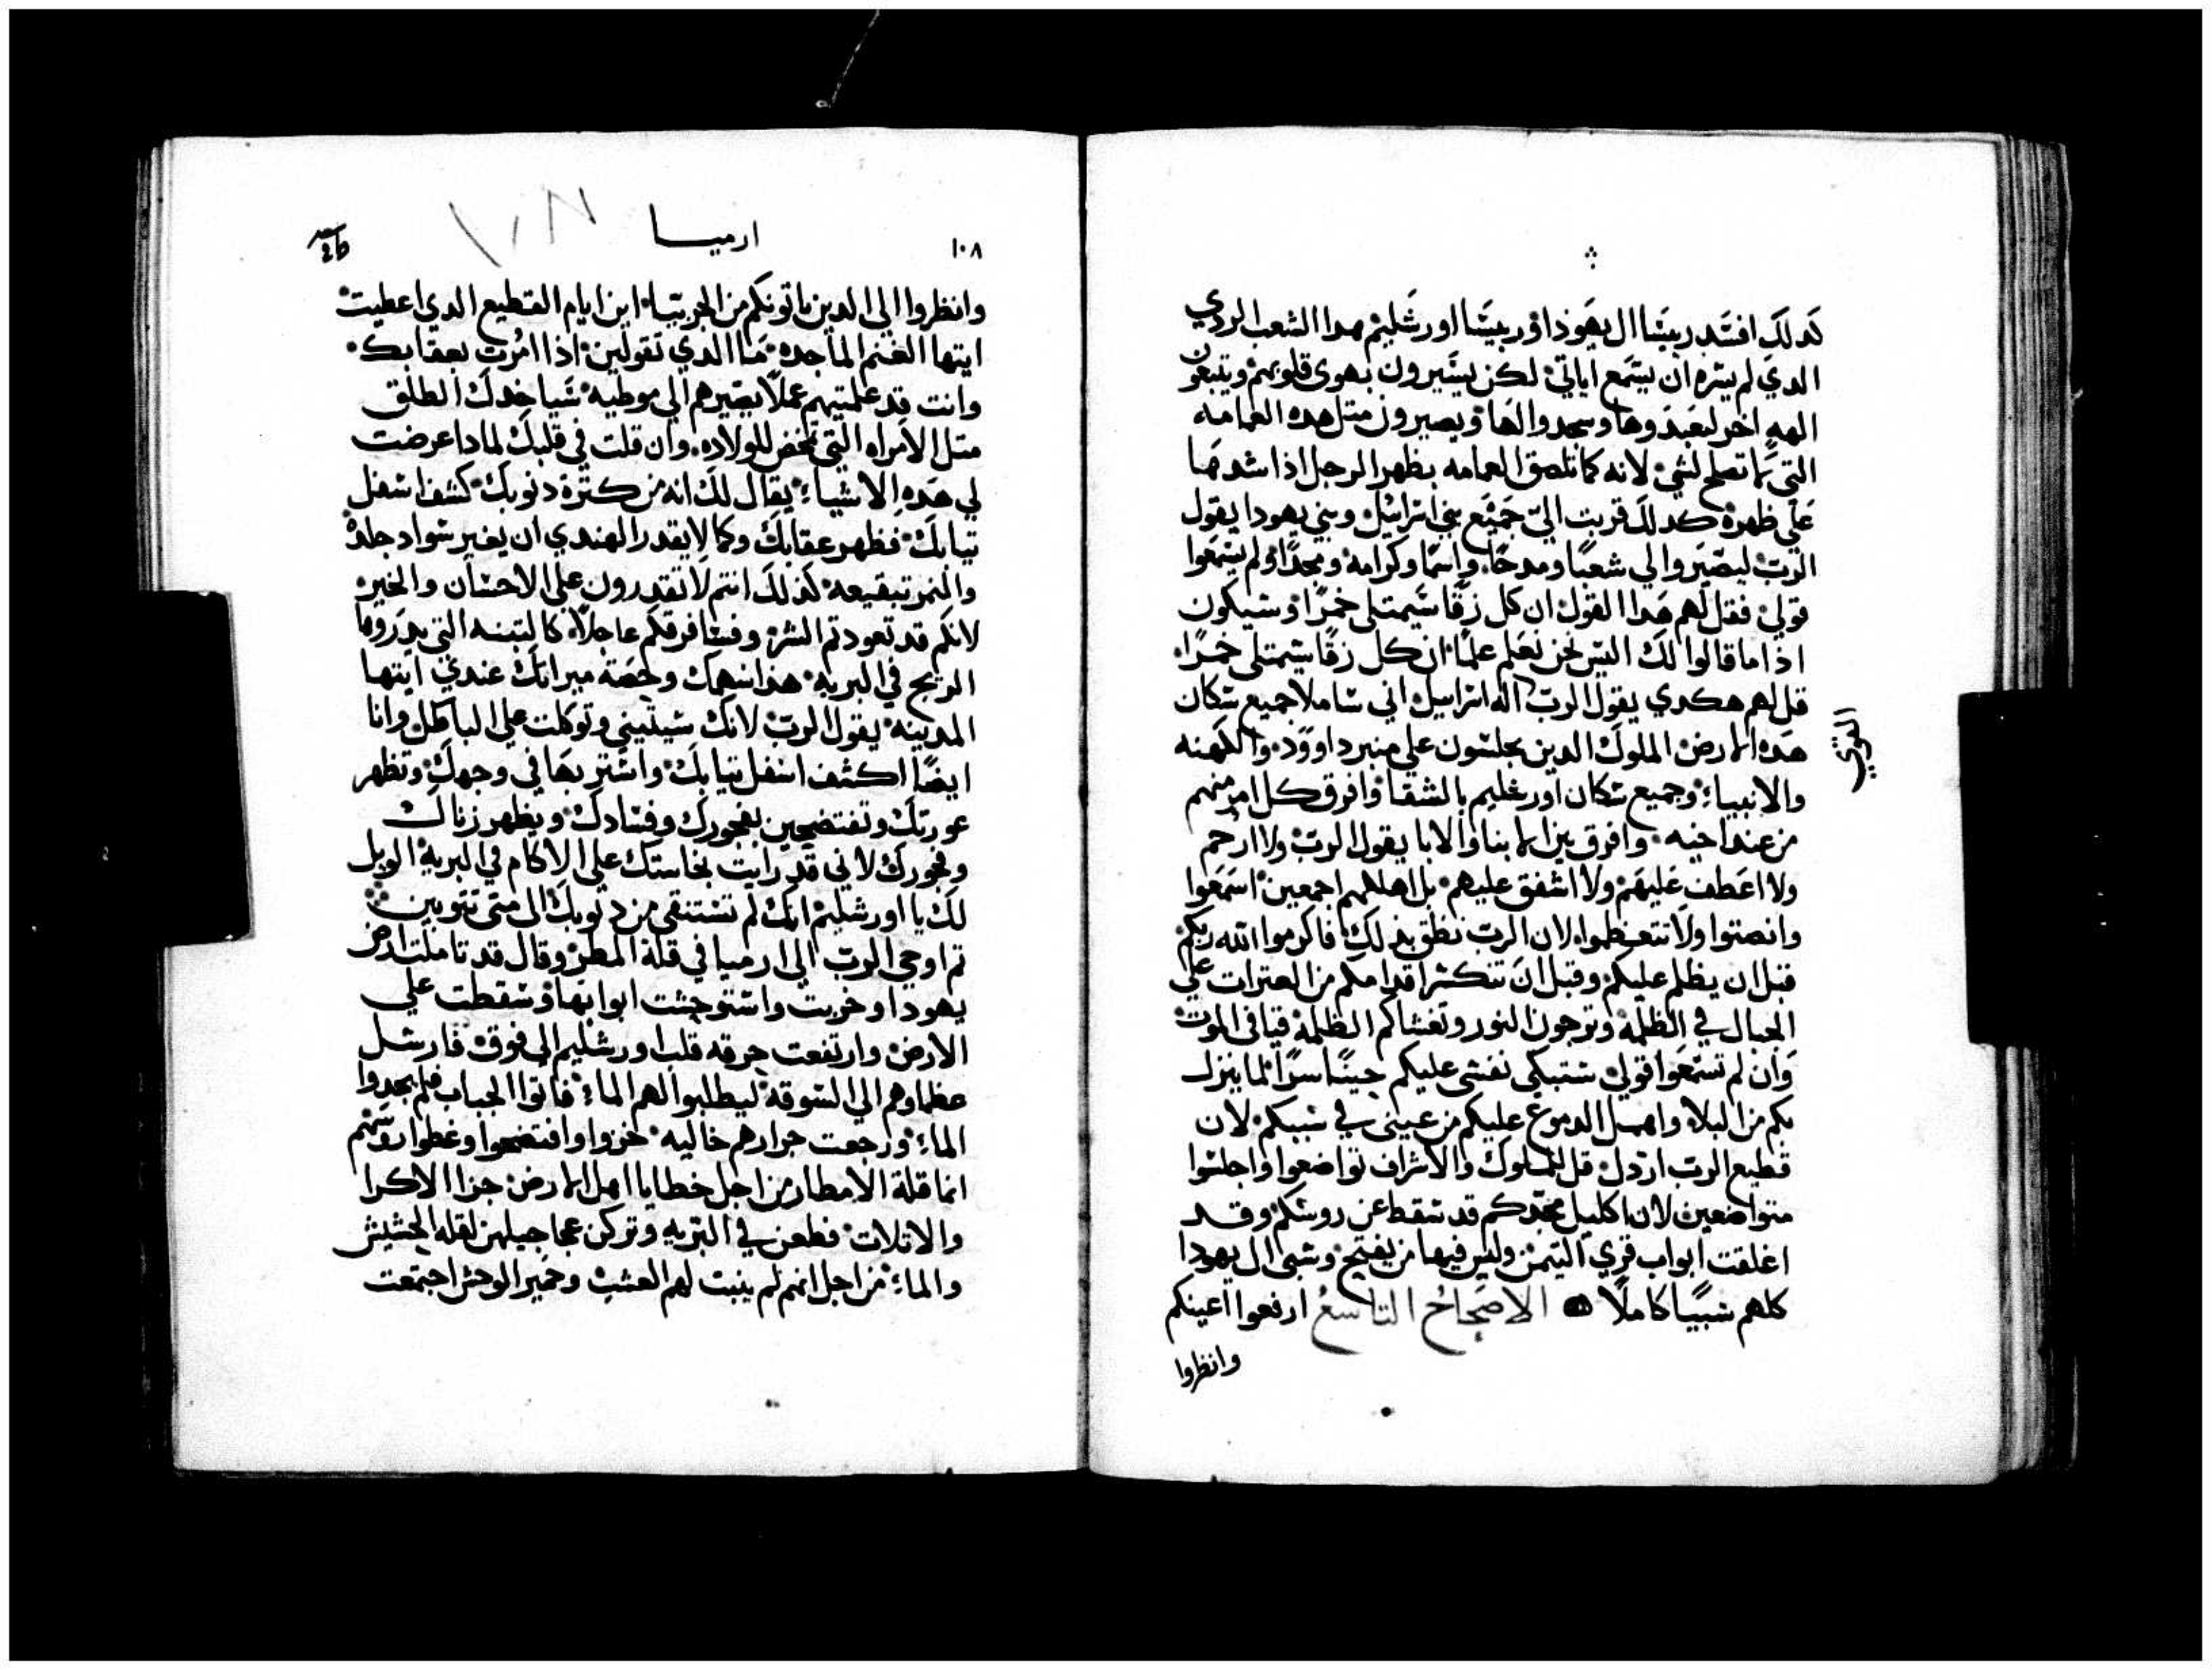 كدلك افسد ربيتا ال يهوذا وربيتا اورشليم هدا الشعب الردي
الدي لم يسره ان يسمع اياتي لكن يسيرون بهوى قلوبهم ويتبعون
الهه اخر ليعبدوها وسجدوا لها ويصيرون متل هده العمامه
التي ما تصلح لشي لانه كما تلصق العمامه بظهر الرجل اذا شدها
علي ظهره كدلك قربت الي جميع بني اسرائيل وبني يهودا يقول
الرب ليصيروا لي شعبا ومدحا واسما وكرامة ومجدا ولم يسمعوا
قولي فقل لهم هدا القول ان كل زقا سيمتلى خمرا وسيكون
اذا ما قالوا لك اليس نحن نعلم علما ان كل زقا سيمتلى خمرا
قل لهم هكدي يقول الرب اله اسراييل اني ساملا جميع سكان
هده الارض الملوك الدين يجلسون علي منبر داوود والكهنه
والانبياء وجميع سكان اورشليم بالشقا وافرق كل امر منهم
من عند اخيه وافرق بين الابنا والابا يقول الرب ولا ارحم
ولا اعطف عليهم ولا اشفق عليهم بل اهلكهم اجمعين اسمعوا
وانصتوا ولا تتعظموا لان الرب نطق بذلك فاكرموا الله ربكم
قبل ان يظلم عليكم وقبل ان تنكسر اقدامكم من العترات علي
الجبال في الظلمة وترجون النور وتغشاكم الظلمة فيافى الموت
وان لم تسمعوا قولي ستبكي نفسي عليكم حينا سرا لما ينزل
بكم من البلا واهمل الدموع عليكم من عيني في سبيكم لان
قطيع الرب اردل قل للملوك والاشراف تواضعوا واجلسوا
متواضعين لان اكليل مجدكم قد سقط عن روسكم وقد
اغلقت ابواب قري التيمن وليس فيها من يفتح وسبي ال يهودا
كلهم سبيا كاملا الاصحاح التاسع ارفعوا اعينكم
وانظروا
١٠٨
ارميا
وانظروا الي الدين ياتونكم من الجربيا اين ايام القطيع الدي اعطيت
ايتها الغنم الماجده ما الدي تقولين اذا امرت بعقابك
وانت قد علمتيهم عملا بصيرهم الي موطيه شيا خدك الطلق
متل الامراه التي تمخض للولاده وان قلت في قلبك لمادا عرضت
لي هده الاشياء يقال لك انه من كترة دنوبك كشف اسفل
تيابك فظهر عقابك وكما لا يقدر الهندي ان يغير سواد جلده
والنمر تبقيعه كذلك انتم لا تقدرون علي الاحسان والخير
لانكم قد تعودتم الشر وسافرقكم عاجلا كالتبنه التي يدروها
الريح في البريه هذا سهمك وحصة ميراتك عندي ايتها
المدينه يقول الرب لانك نسيتيني وتوكلت علي الباطل وانا
ايضا اكشف اسفل تيابك واستر بها في وجهك وتظهر
عورتك وتفتضحين بفجورك وفسادك ويظهر زناك
وفجورك لاني قد رايت نجاستك علي الاكام في البرية الويل
لك يا اورشليم انك لم تستنقي من دنوبك الى متى تتوبين
تم اوحي الرب الي ارميا في قلة المطر وقال قد تاملت ارض
يهودا وخربت واستوحشت ابوابها وسقطت علي
الارض وارتفعت حرقه قلب اورشليم الي فوق فارسل
عظماوهم الي السوقة ليطلبوا لهم الماء فاتوا الجباب فلم يجدوا
الماء ورجعت جرارهم خاليه خزوا وافتضحوا وغطوا روسهم
انما قلة الامطار من اجل خطايا اهل الارض جزا الاكرا
والاتلات فطعن في البريه وتركن عجاجيلهن لقله الحشيش
والماء من اجل انهم لم ينبت لهم العشب وحمير الوحش اجتمعت